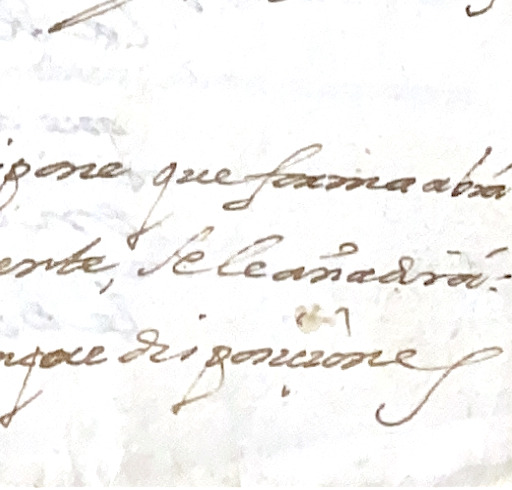 ipone que forma abrá
ente, se le añadirá.
que disposiciones